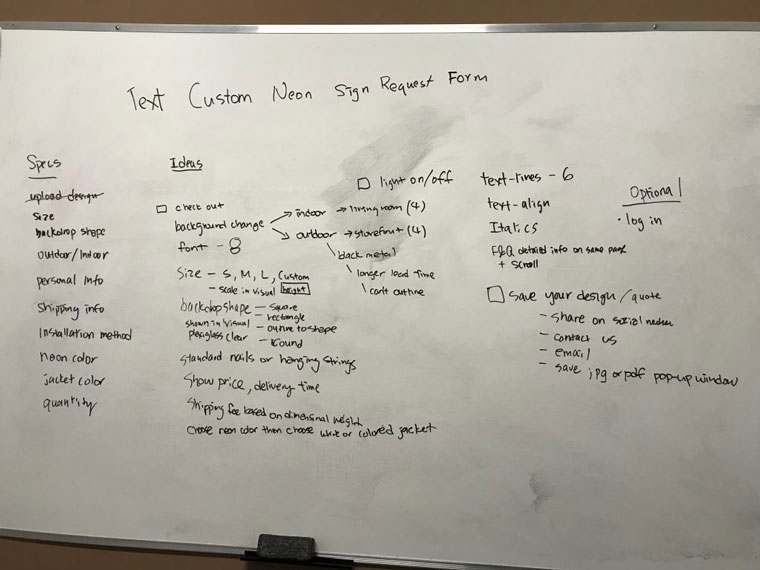 Text Custom Neon Sign Request Form
Specs
upload design
Size
backdrop shape
outdoor/Indoor
personal Info
Shipping info
Installation method
neon color
jacket color
quantity
Ideas
light on/off
check out
background change → indoor → living room (4)
→ outdoor → storefront (4)
font - 8
\ back metal
\ longer lead time
\ can't outline
Size - S, M, L, Custom
- scale in visual height
backdrop shape - square
- rectangle
shown in visual - outline to shape
plexiglass clear - round
standard nails or hanging strings
Show price, delivery time
Shipping fee based on dimensional weight
choose neon color then choose white or colored jacket
text-lines - 6
text-align
Italics
F&Q detailed info on same page
+ scroll
save your design/quote
- share on social media
- contact us
- email
- save jpg or pdf pop-up window
Optional
· log in